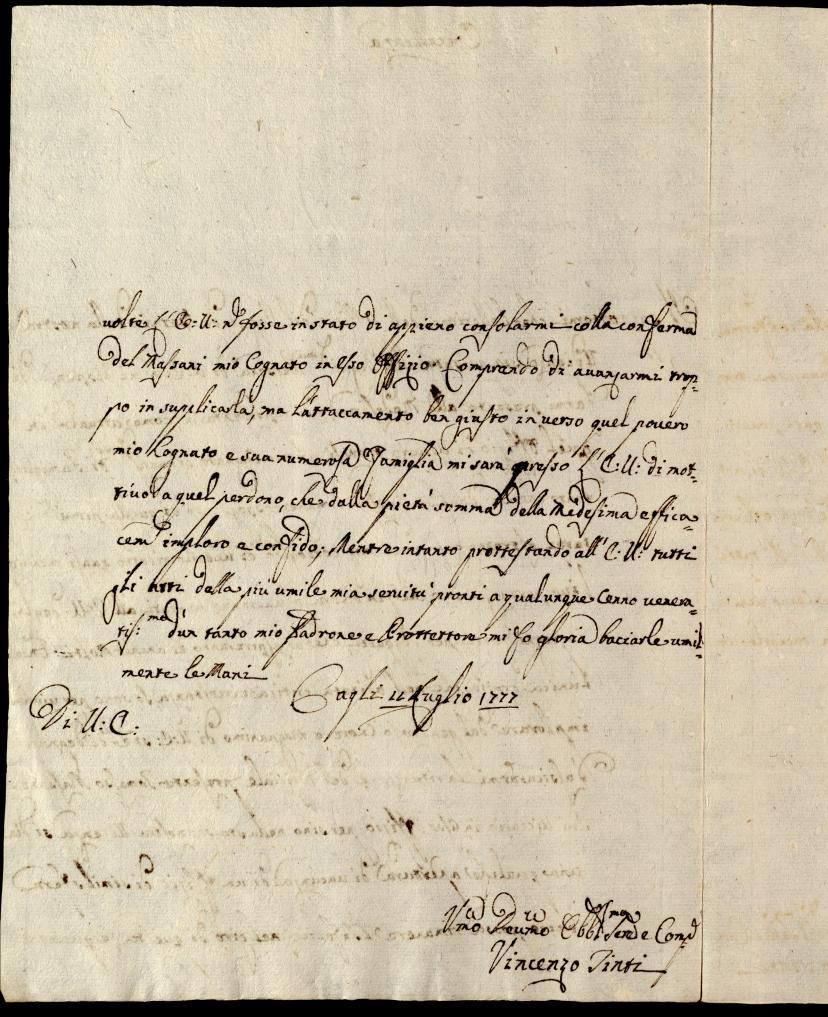 volte l'E: V: nõ fosse in stato di appieno consolarmi colla conferma
del Massani mio Cognato in esso Offizio. Comprendo di avanzarmi trop=
po in supplicarla, ma l'attaccamento ben giusto inverso quel povero
mio Cognato e sua numerosa Famiglia mi sarà presso l'E: V: di mot=
tivo a quel perdono, che dalla pietà somma della Medesima effica=
cem.te imploro e confido; Mentre intanto prottestando all'E: V: tutti
gli atti della più umile mia servitù pronti a qualunque Cenno venera=
tiss:mo d'un tanto mio Padrone e Prottettore mi fo gloria bacciarle umil=
mente le Mani
Cagli 11 Luglio 1777
Di V: E:
Vmo Devmo Obblmo Serd e
Vincenzo Tinti